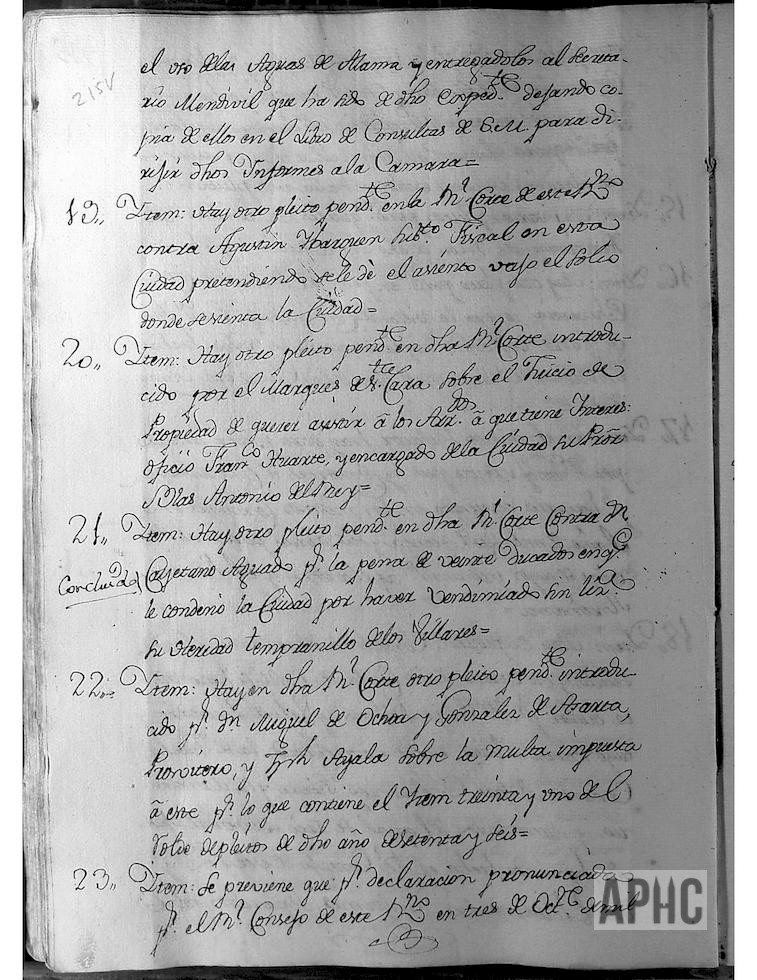 215v
el uso delas Aguas de Alama y entregadolos al Secreta-
rio Mendivil que ha sido de dho Exped.te dejando co-
pia de ellos en el Libro de Consultas de S.M. para di-
rijir dhos Informes ala Camara=
19,, Ytem: Hay otro pleito pend.te en la R.l Corte de este R.no
contra Agustin Ybarguen subs.to Fiscal en esta
Ciudad pretendiendo sele dè el asiento vajo el Solio
donde sesienta la Ciudad=
20,, Ytem: Hay otro pleito pend.te en dha R.l Corte introdu-
cido por el Marques de S.ta Cara sobre el Juicio de
Propiedad de querer asistir â los Arr.dos â que tiene Interes:
oficio Fran.co Huarte, y encargado dela Ciudad su Pror
Blas Antonio del Rey=
21,, Ytem: Hay otro pleito pend.te en dha R.l Corte Contra Dn
Concluido Cayetano Aguado p.r la pena de veinte Ducados en q.e
le condenò la Ciudad por haver vendimiado sin liz.a
su Heredad tempranillo delos Villares=
22,, Ytem: Hay en dha R.l Corte otro pleito pend.te introdu-
cido p.r dn. Miguel de Ochoa y Gonzalez de Ararta,
Presvitero, y Jph Ayala sobre la multa impuesta
â este p.r lo que contiene el Ytem treinta y uno del
Rolde de pleitos de dho año desetenta y seis=
23,, Ytem: Se previene que p.r declaracion pronunciada
p.r el R.l Consejo de este R.no en tres de Oct.e de mil
APHC